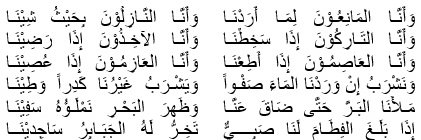 وَأَنَّا المَانِعُوْنَ لِمَا أَرَدْنَا وَأَنَّا النَّازِلُوْنَ بِحَيْثُ شِيْنَا
وَأَنَّا التَارِكُوْنَ إِذَا سَخِطْنَا وَأَنَّا الآخِذُوْنَ إِذَا رَضِيْنَا
وَأَنَّا العَاصِمُوْنَ إِذَا أُطِعْنَا وَأَنَّا العَازِمُوْنَ إِذَا عُصِيْنَا
وَنَشْرَبُ إِنْ وَرَدْنَا المَاءَ صَفْواً وَيَشْرَبُ غَيْرُنَا كَدِراً وَطِيْنَا
مَلأْنَا البَرَّ حَتَّى ضَاقَ عَنَّا وَظَهرَ البَحْرِ نَمْلَؤُهُ سَفِيْنَا
إِذَا بَلَغَ الفِطَامَ لَنَا صَبِيٌّ تَخِرُّ لَهُ الجَبَابِرُ سَاجِدِيْنَا